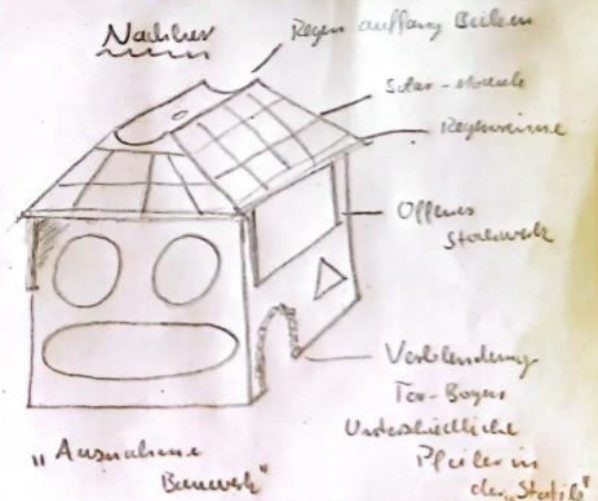 Nachher
Regen auffang Becken
Solar-Module
Regenrinne
Offenes
Stockwerk
Verblendung
Tor-Bogen
Unterschiedliche
Pfeiler in
der Statik"
"Ausnahme
Bauwerk"